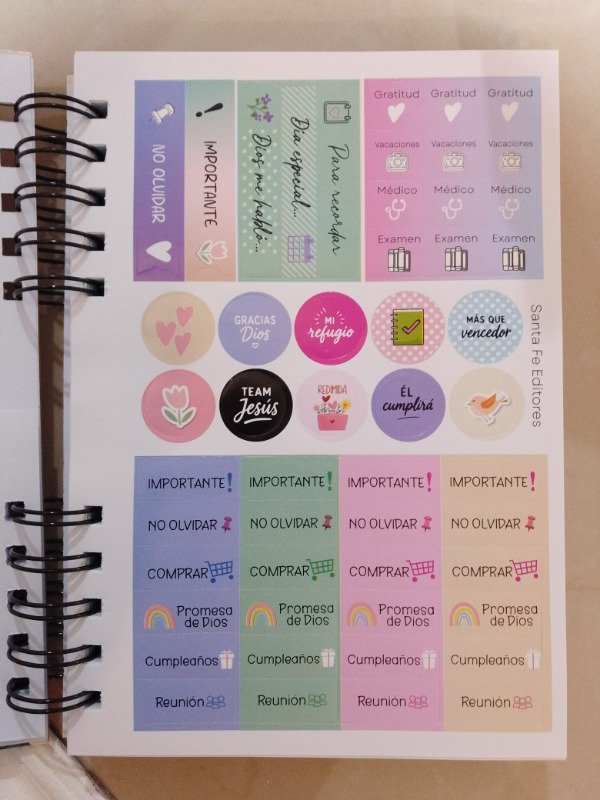 NO OLVIDAR
IMPORTANTE
Dios me habló...
Día especial...
Para recordar
Gratitud Gratitud Gratitud
Vacaciones Vacaciones Vacaciones
Médico Médico Médico
Examen Examen Examen
GRACIAS
Dios
MI
refugio
MÁS QUE
vencedor
TEAM
Jesús
REDIMIDA
ÉL
cumplirá
Santa Fe Editores
IMPORTANTE! IMPORTANTE! IMPORTANTE! IMPORTANTE!
NO OLVIDAR NO OLVIDAR NO OLVIDAR NO OLVIDAR
COMPRAR COMPRAR COMPRAR COMPRAR
Promesa Promesa Promesa Promesa
de Dios de Dios de Dios de Dios
Cumpleaños Cumpleaños Cumpleaños Cumpleaños
Reunión Reunión Reunión Reunión